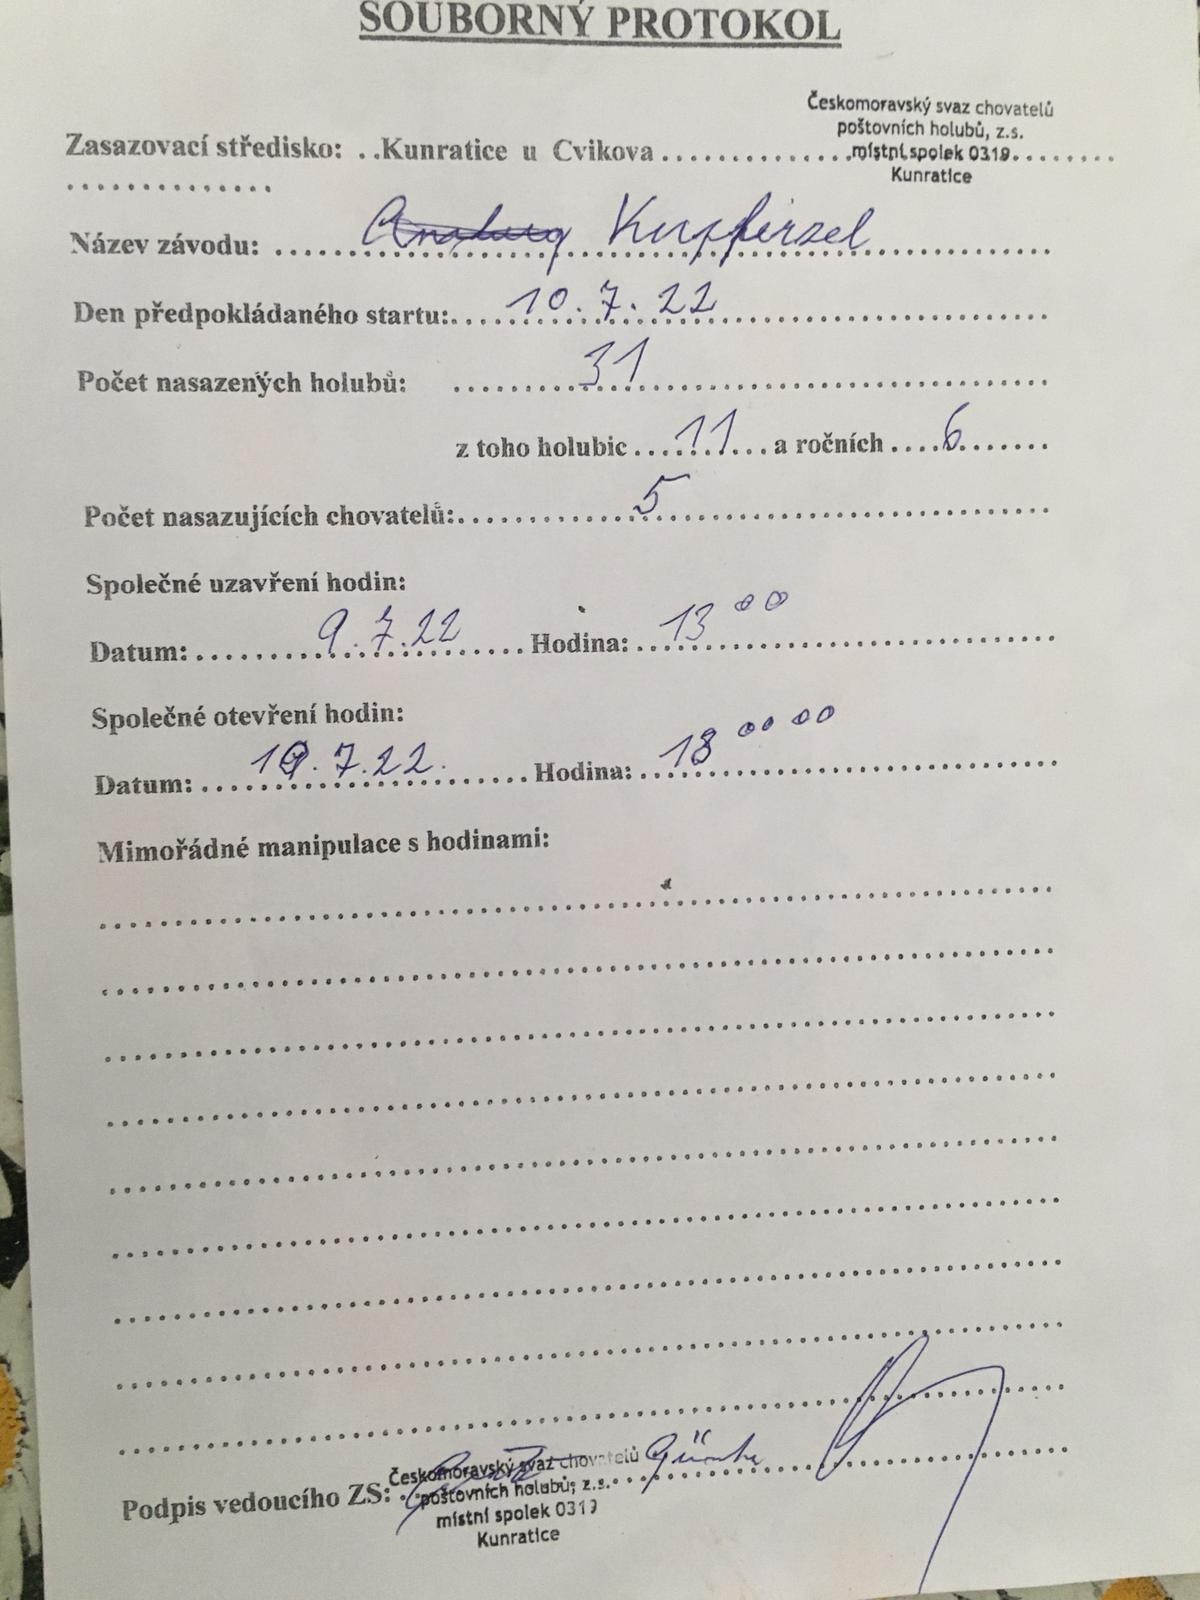 SOUBORNÝ PROTOKOL
Českomoravský svaz chovatelů
poštovních holubů, z.s.
Zasazovací středisko: ..Kunratice u Cvikova.............místní spolek 0319........
Kunratice
..............
Název závodu: Kupferzel
Den předpokládaného startu: 10.7.22
Počet nasazených holubů: 31
z toho holubic 11 a ročních 6
Počet nasazujících chovatelů: 5
Společné uzavření hodin:
Datum: 9.7.22 Hodina: 13 00
Společné otevření hodin:
Datum: 10.7.22. Hodina: 18 00 00
Mimořádné manipulace s hodinami:
Českomoravský svaz chovatelů
Podpis vedoucího ZS: poštovních holubů, z.s.
místní spolek 0319
Kunratice